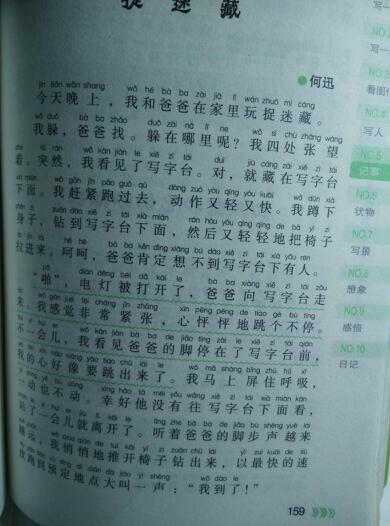 捉迷藏
●何迅
今天晚上，我和爸爸在家里玩捉迷藏。
我躲，爸爸找。躲在哪里呢？我四处张望
着。突然，我看见了写字台。对，就藏在写字台
下面。我赶紧跑过去，动作又轻又快。我蹲下
身子，钻到写字台下面，然后又轻轻地把椅子
拉进来。呵呵，爸爸肯定想不到写字台下有人。
“啪”，电灯被打开了，爸爸向写字台走
来。我感觉非常紧张，心怦怦地跳个不停。
不一会儿，我看见爸爸的脚停在了写字台前，
我的心好像要跳出来了。我马上屏住呼吸，
一动也不动。幸好他没有往写字台下面看，
站了一会儿就离开了。听着爸爸的脚步声越来
越远，我悄悄地推开椅子钻出来，以最快的速
度跑到预定地点大叫一声：“我到了！”
159
写一
NO.
写一
NO.
看图作
NO.4
写人
NO.5
记事
NO.6
状物
NO.7
写景
NO.8
想象
NO.9
感悟
NO.10
日记